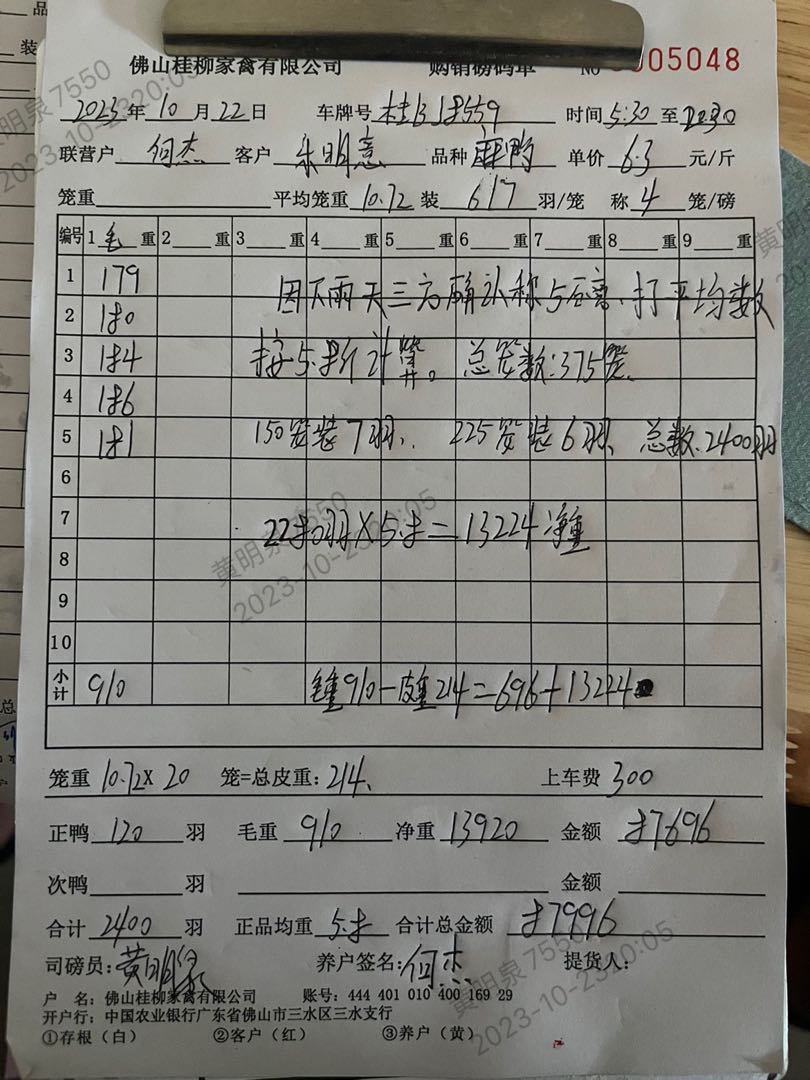 佛山桂柳家禽有限公司 购销磅码单 NO 0005048
2023年10月22日 车牌号 桂B18559 时间5:30至2230
联营户 何杰 客户 朱明意 品种 麻鸭 单价 6.3 元/斤
笼重 平均笼重 10.72 装 6/7 羽/笼 称 4 笼/磅
编号 1 毛 重 2 重 3 重 4 重 5 重 6 重 7 重 8 重 9 重
1 179 因下雨天三方确认称5磅,打平均数
2 180
3 184 按5.8斤计算。总笼数:375笼、
4 186
5 181 150笼装7羽、225笼装6羽、总数.2400羽
6
7 2280羽×5.8=13224净重
8
9
10
小计 910 毛重910-皮重214=696+13224
笼重 10.72×20 笼=总皮重:214、 上车费 300
正鸭 120 羽 毛重 910 净重 13920 金额 87696
次鸭 羽 金额
合计 2400 羽 正品均重 5.8 合计总金额 87996
司磅员:黄明泉 养户签名:何杰 提货人:
户 名:佛山桂柳家禽有限公司 账号:444 401 010 400 169 29
开户行:中国农业银行广东省佛山市三水区三水支行
①存根(白) ②客户(红) ③养户(黄)
黄明泉 7550
2023-10-23 20:05